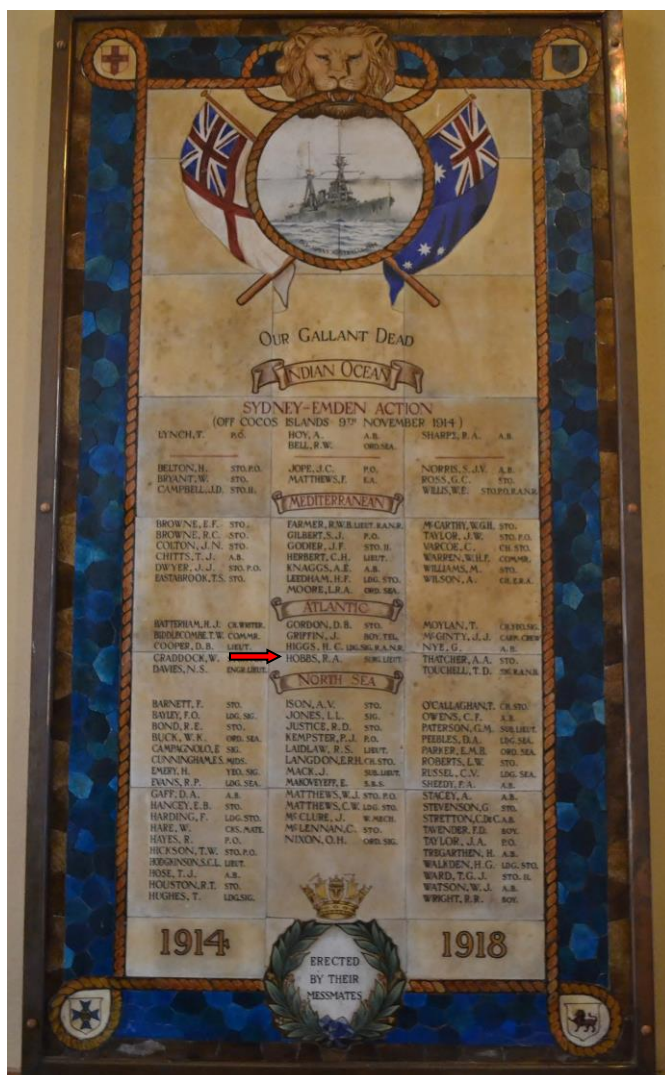 OUR GALLANT DEAD
INDIAN OCEAN
SYDNEY-EMDEN ACTION
(OFF COCOS ISLANDS 9TH NOVEMBER 1914)
LYNCH, T. P.O.
HOY, A. A.B.
BELL, R.W. ORD.SEA.
SHARPE, R.A. A.B.
BELTON, H. STO.P.O.
BRYANT, W. STO.
CAMPBELL, J.D. STO.II.
JOPE, J.C. P.O.
MATTHEWS, F. E.A.
NORRIS, S.J.V. A.B.
ROSS, G.C. STO.
WILLIS, W.E. STO.P.O.R.A.N.R.
MEDITERRANEAN
BROWNE, E.F. STO.
BROWNE, R.C. STO.
COLTON, J.N. STO.
CHITTS, T.J. A.B.
DWYER, J.J. STO.P.O.
EASTABROOK, T.S. STO.
FARMER, R.W.B. LIEUT. R.A.N.R.
GILBERT, S.J. P.O.
GODIER, J.F. STO. II.
HERBERT, C.H. LIEUT.
KNAGGS, A.E. A.B.
LEEDHAM, H.F. LDG. STO.
MOORE, L.R.A. ORD. SEA.
McCARTHY, W.G.H. STO.
TAYLOR, J.W. STO. P.O.
VARCOE, C. CH. STO.
WARREN, W.H.F. COMMR.
WILLIAMS, M. STO.
WILSON, A. CH.E.R.A.
ATLANTIC
HATTERHAM, H.J. CH.WRITER.
BIDDLECOMBE, T.W. COMMR.
COOPER, D.B. LIEUT.
CRADDOCK, W.
DAVIES, N.S. ENGR.LIEUT.
GORDON, D.B. STO.
GRIFFIN, J. BOY. TEL.
HIGGS, H.C. LDG.SIG. R.A.N.R.
HOBBS, R.A. SURG. LIEUT.
MOYLAN, T. CH.YEO.SIG.
McGINTY, J.J. CARP. CREW
NYE, G. A.B.
THATCHER, A.A. STO.
TOUCHELL, T.D. SIG.R.A.N.R.
NORTH SEA
BARNETT, F. STO.
BAYLEY, F.O. LDG. SIG.
BOND, R.E. STO.
BUCK, W.K. ORD. SEA.
CAMPAGNOLO, E SIG.
CUNNINGHAM, E.S. MIDS.
EMERY, H. YEO. SIG.
EVANS, R.P. LDG. SEA.
GAFF, D.A. A.B.
HANCEY, E.B. STO.
HARDING, F. LDG. STO.
HARE, W. CKS. MATE.
HAYES, R. P.O.
HICKSON, T.W. STO. P.O.
HODGKINSON, S.C.L. LIEUT.
HOSE, T.J. A.B.
HOUSTON, R.T. STO.
HUGHES, T. LDG.SIG.
ISON, A.V. STO.
JONES, L.L. SIG.
JUSTICE, R.D. STO.
KEMPSTER, P.J. P.O.
LAIDLAW, R.S. LIEUT.
LANGDON, E.R.H. CH.STO.
MACK, J. SUB.LIEUT.
MAKOVEYEFF, E. S.B.S.
MATTHEWS, W.J. STO. P.O.
MATTHEWS, C.W. LDG. STO.
McCLURE, J. W.MECH.
McLENNAN, C. STO.
NIXON, O.H. ORD. SIG.
O'CALLAGHAN, T. CH. STO.
OWENS, C.F. A.B.
PATERSON, G.M. SUB. LIEUT.
PEEBLES, D.A. LDG. SEA.
PARKER, E.M.B. ORD. SEA.
ROBERTS, L.W. STO.
RUSSEL, C.V. LDG. SEA.
SHEEDY, P.A. A.B.
STACEY, A. A.B.
STEVENSON, G STO.
STRETTON, C.De C. A.B.
TAVENDER, F.D. BOY.
TAYLOR, J.A. P.O.
TREGARTHEN, H. A.B.
WALKDEN, H.G. LDG. STO.
WARD, T.G.J. STO. II.
WATSON, W.J. A.B.
WRIGHT, R.R. BOY.
1914 1918
ERECTED
BY THEIR
MESSMATES